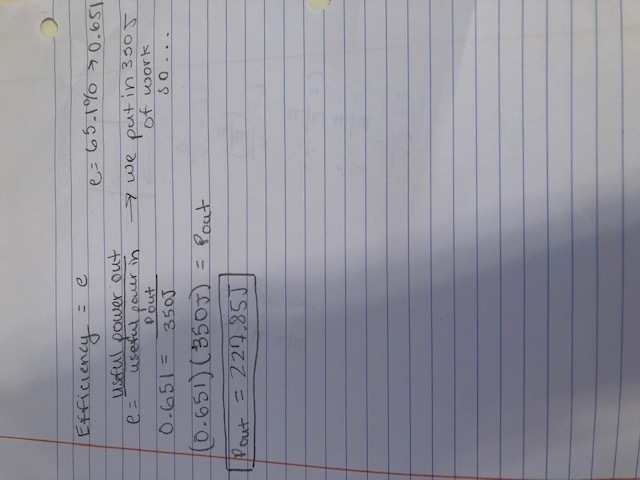 Efficiency = e
e = 65.1% → 0.651
e = useful power out / useful power in → we put in 350J
of work
so...
0.651 = Pout / 350J
(0.651)(350J) = Pout
Pout = 227.85J